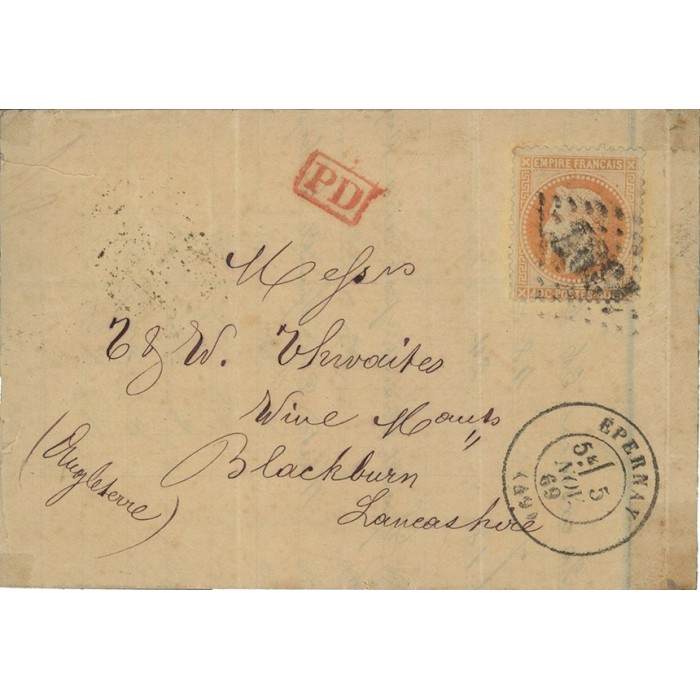 PD
EMPIRE FRANCAIS
Messrs
T & W. Thwaites
Wine Mcts
Blackburn
Lancashire
(Angleterre)
EPERNAY
5E / 5
NOV
69
(49)